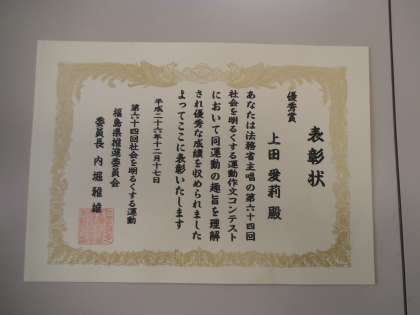 表彰状
優秀賞
上田愛莉殿
あなたは法務省主唱の第六十四回
社会を明るくする運動作文コンテスト
において同運動の趣旨を理解
され優秀な成績を収められました
よってここに表彰いたします
平成二十六年十二月十七日
第六十四回社会を明るくする運動
福島県推進委員会
委員長 内堀雅雄